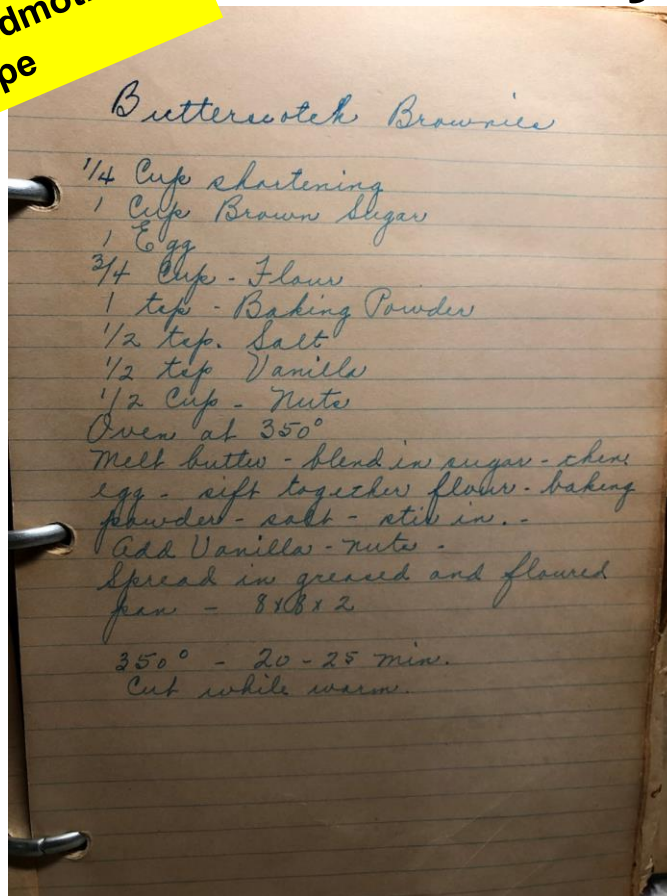 Butterscotch Brownies
1/4 Cup shortening
1 Cup Brown Sugar
1 Egg
3/4 Cup - Flour
1 tsp - Baking Powder
1/2 tsp. Salt
1/2 tsp Vanilla
1/2 Cup - Nuts
Oven at 350°
Melt butter - blend in sugar - then
egg - sift together flour - baking
powder - salt - stir in. -
Add Vanilla - nuts -
Spread in greased and floured
pan - 8x8x2
350° - 20 - 25 min.
Cut while warm.